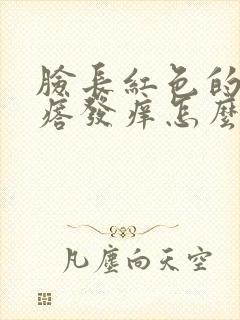 臉長紅色的
痞發痒怎麼
凡塵向天空